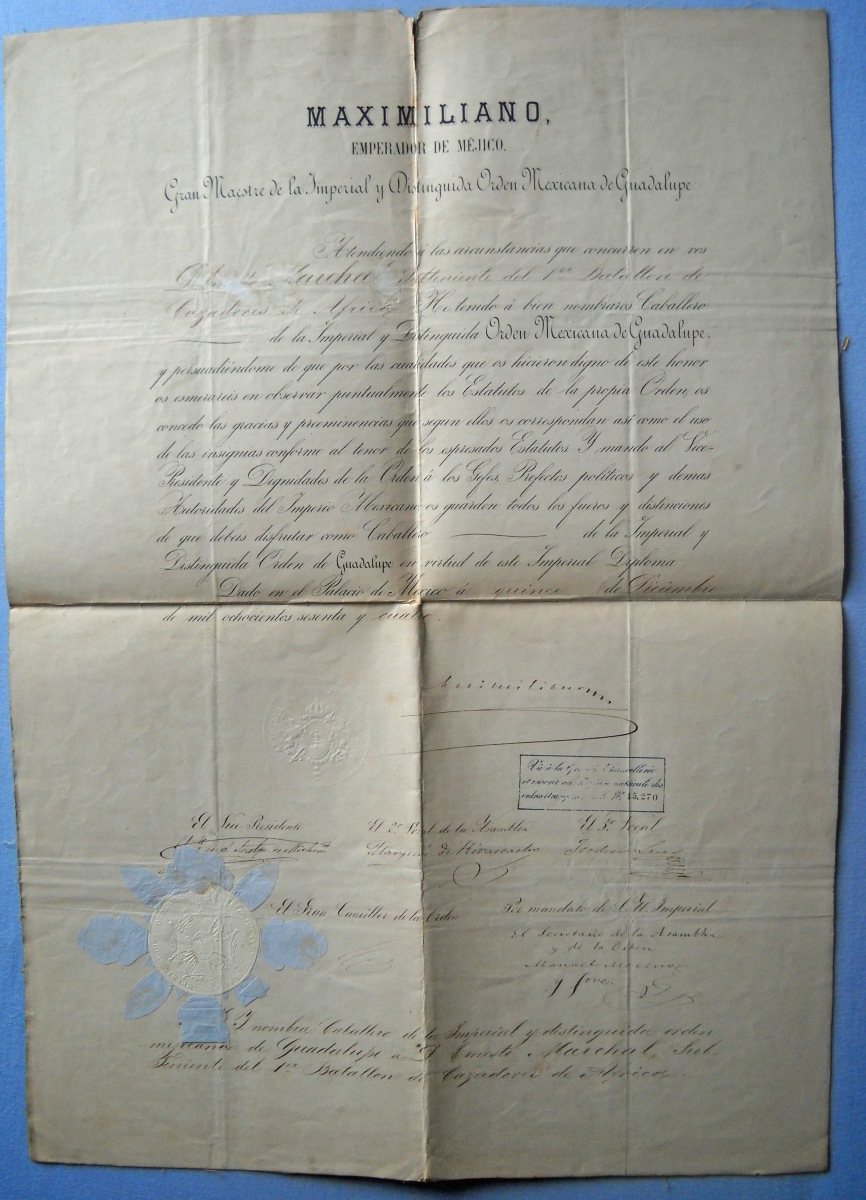 MAXIMILIANO,
EMPERADOR DE MÉJICO.
Gran Maestre de la Imperial y Distinguida Orden Mexicana de Guadalupe
Atendiendo á las circunstancias que concurren en vos
Marchal Subteniente del 1er Batallon de
Cazadores de Africa He tenido á bien nombraros Caballero
de la Imperial y Distinguida Orden Mexicana de Guadalupe,
y persuadiéndome de que por las cualidades que os hicieron digno de este honor
os esmerareis en observar puntualmente los Estatutos de la propia Orden, os
concedo las gracias y preeminencias que segun ellos os correspondan así como el uso
de las insignias conforme al tenor de los espresados Estatutos Y mando al Vice-
Presidente y Dignidades de la Orden á los Gefes, Prefectos políticos y demas
Autoridades del Imperio Mexicano os guarden todos los fueros y distinciones
de que debeis disfrutar como Caballero de la Imperial y
Distinguida Orden de Guadalupe en virtud de este Imperial Diploma
Dado en el Palacio de México á quince de Diciembre
de mil ochocientos sesenta y cuatro.
Maximiliano
Vu à la Chancellerie
et inscrit
No 15,270
El Vice Presidente
El 2o Vocal de la Asamblea
El 3er Vocal
de Rivascacho
Teodosio Lares
El Gran Canciller de la Orden
Por mandato de S. M. Imperial
El Secretario de la Asamblea
y de la Orden
Manuel Moreno
y Jove
S. M. nombra Caballero de la Imperial y distinguida orden
mejicana de Guadalupe á D. Ernesto Marchal, Sub-
Teniente del 1er Batallon de Cazadores de Africa.